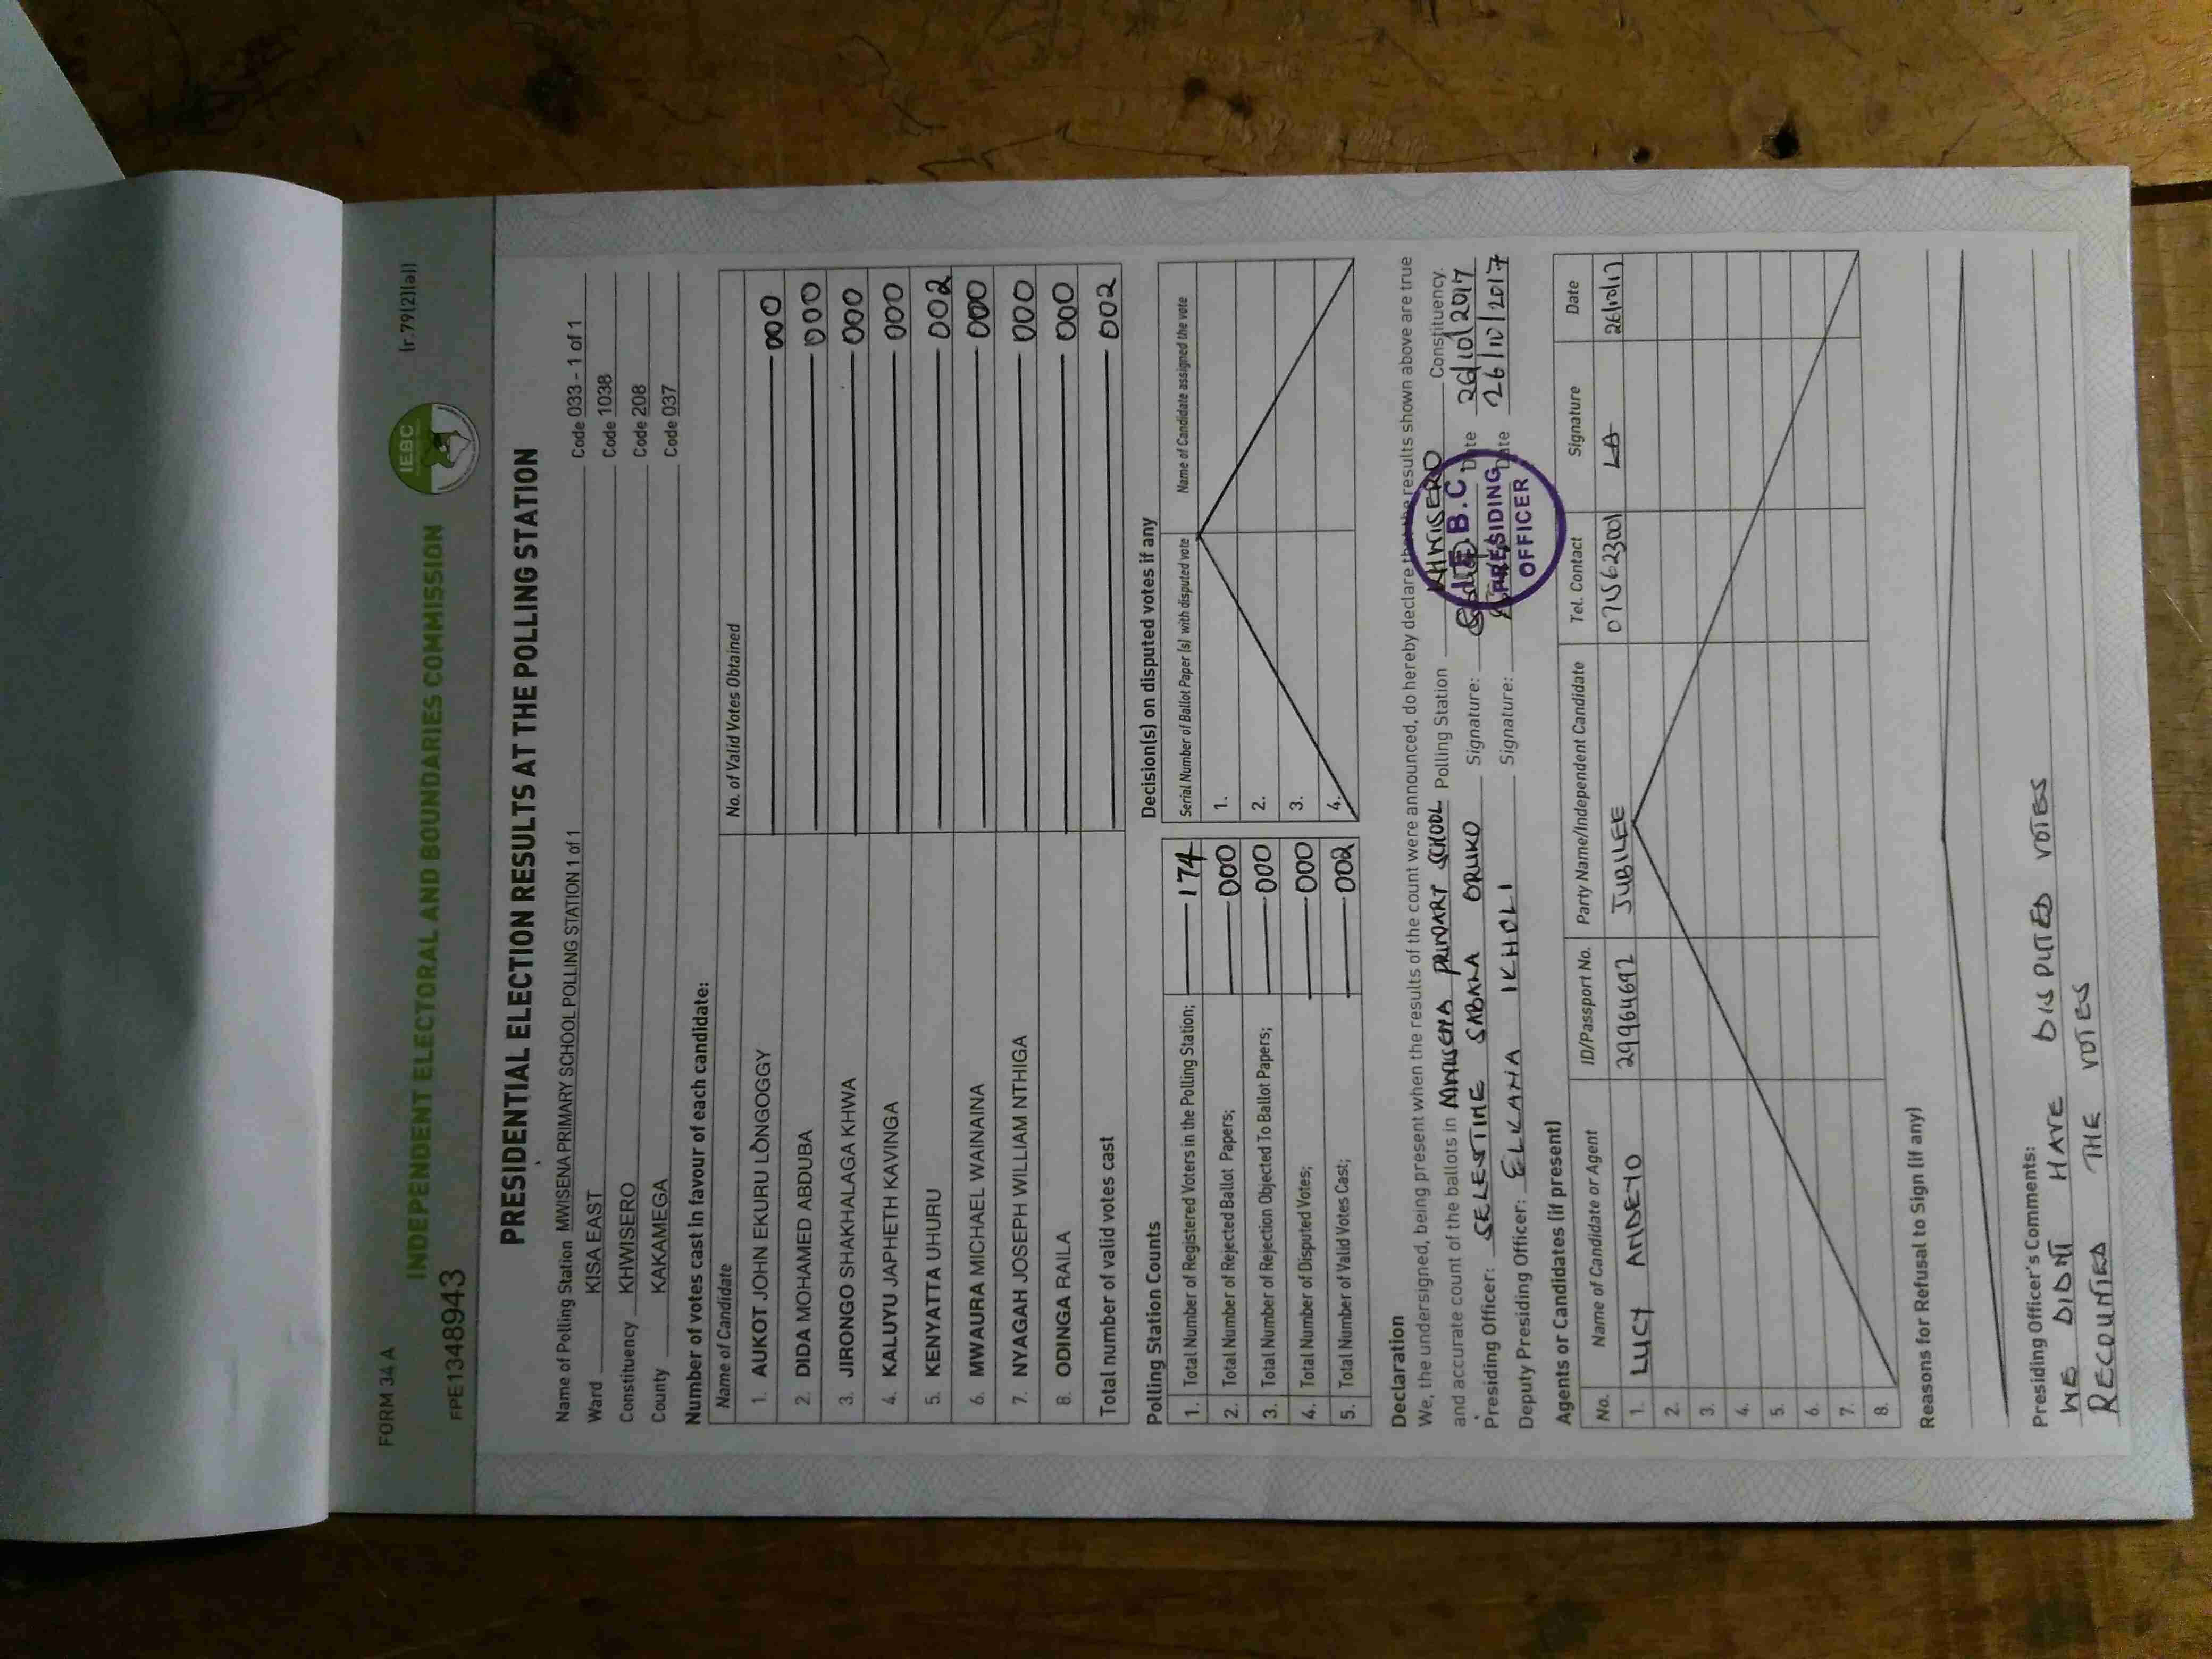 FORM 34 A
(r.79(2)(a))
INDEPENDENT ELECTORAL AND BOUNDARIES COMMISSION
IEBC
FPE1348943
PRESIDENTIAL ELECTION RESULTS AT THE POLLING STATION
Name of Polling Station MWISENA PRIMARY SCHOOL POLLING STATION 1 of 1 Code 033 - 1 of 1
Ward KISA EAST Code 1038
Constituency KHWISERO Code 208
County KAKAMEGA Code 037
Number of votes cast in favour of each candidate:
Name of Candidate No. of Valid Votes Obtained
1. AUKOT JOHN EKURU LONGOGGY 000
2. DIDA MOHAMED ABDUBA 000
3. JIRONGO SHAKHALAGA KHWA 000
4. KALUYU JAPHETH KAVINGA 000
5. KENYATTA UHURU 002
6. MWAURA MICHAEL WAINAINA 000
7. NYAGAH JOSEPH WILLIAM NTHIGA 000
8. ODINGA RAILA 000
Total number of valid votes cast 002
Polling Station Counts
1. Total Number of Registered Voters in the Polling Station; 174
2. Total Number of Rejected Ballot Papers; 000
3. Total Number of Rejection Objected To Ballot Papers; 000
4. Total Number of Disputed Votes; 000
5. Total Number of Valid Votes Cast; 002
Decision(s) on disputed votes if any
Serial Number of Ballot Paper (s) with disputed vote Name of Candidate assigned the vote
1.
2.
3.
4.
Declaration
We, the undersigned, being present when the results of the count were announced, do hereby declare that the results shown above are true
and accurate count of the ballots in MWISENA PRIMARY SCHOOL Polling Station KHWISERO Constituency.
Presiding Officer: SELESTINE SABANA ORUKO Signature: Date 26/10/2017
Deputy Presiding Officer: ELKANA IKHOLI Signature: Date 26/10/2017
I.E.B.C
PRESIDING
OFFICER
Agents or Candidates (if present)
No. Name of Candidate or Agent ID/Passport No. Party Name/Independent Candidate Tel. Contact Signature Date
1. LUCY ANDEYO 29964692 JUBILEE 0715623001 LA 26/10/17
2.
3.
4.
5.
6.
7.
8.
Reasons for Refusal to Sign (if any)
Presiding Officer's Comments:
WE DIDNT HAVE DISPUTED VOTES
RECOUNTED THE VOTES